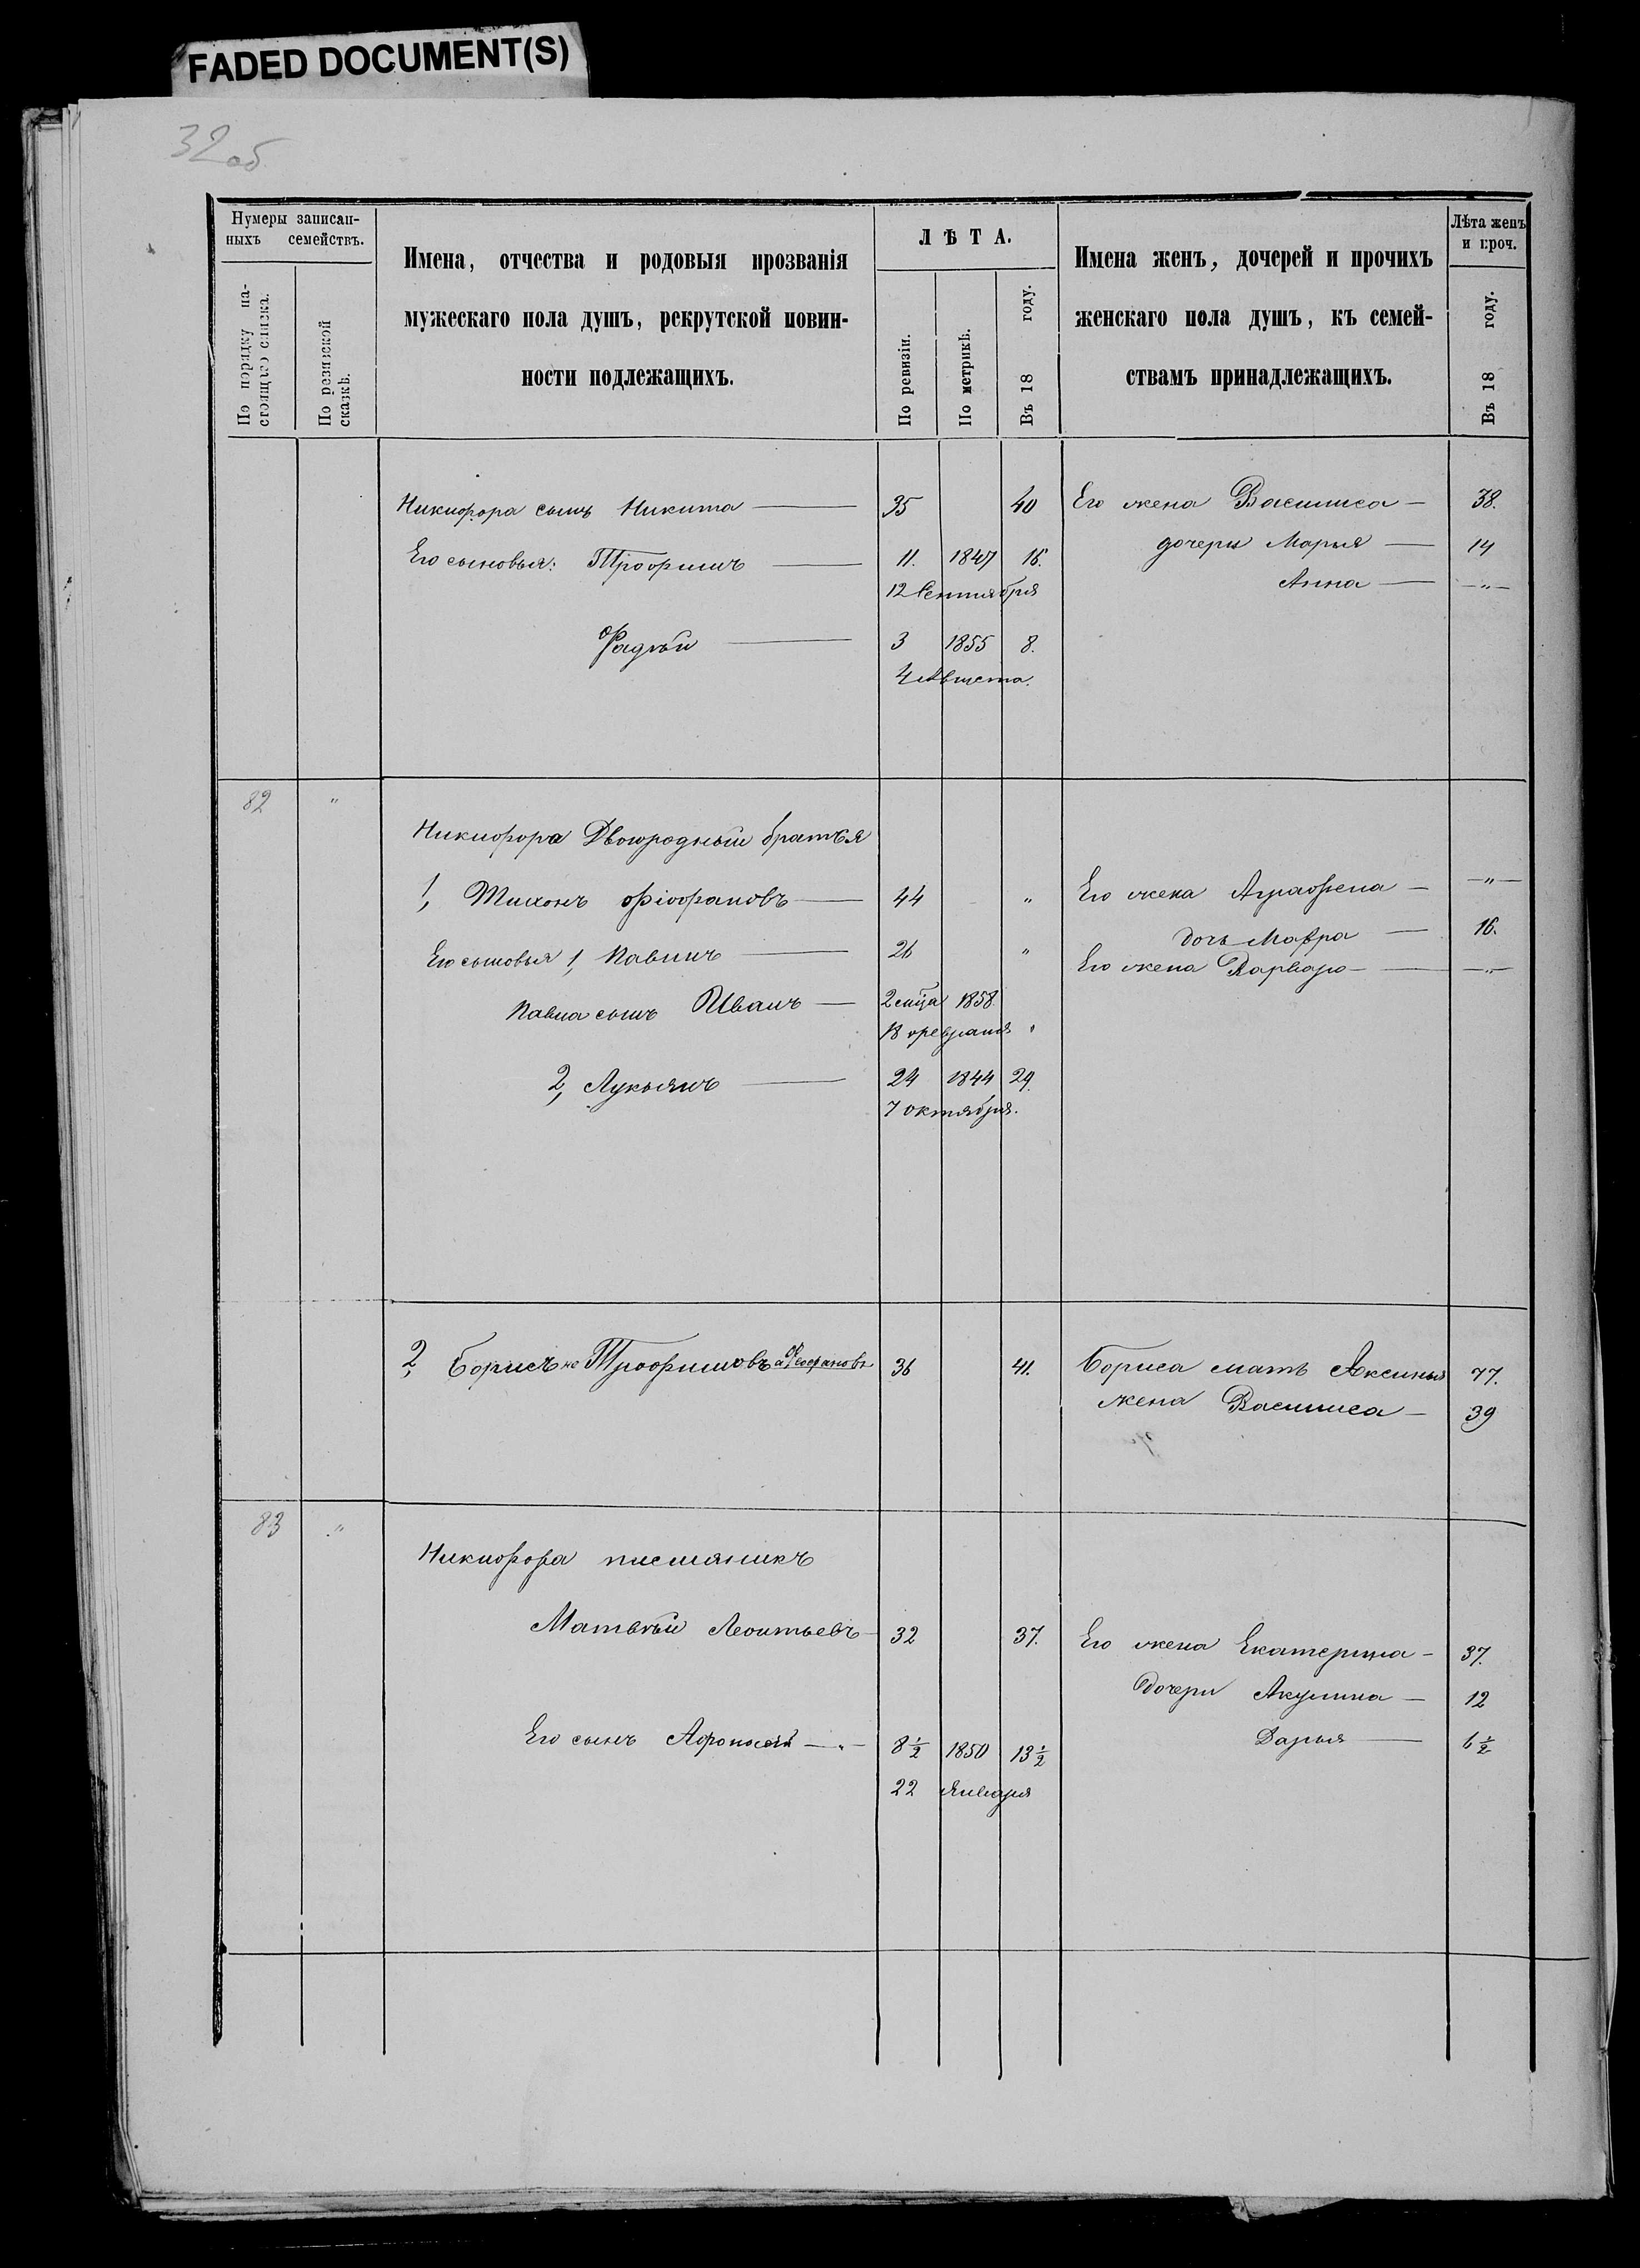 FADED DOCUMENT(S)
32 об
Нумеры записан-
ныхъ семействъ.
По порядку на-
стоящаго списка.
По ревизской
сказкѣ.
Имена, отчества и родовыя прозванія
мужескаго пола душъ, рекрутской повин-
ности подлежащихъ.
Л Ѣ Т А.
По ревизіи.
По метрикѣ.
Въ 18 году.
Имена женъ, дочерей и прочихъ
женскаго пола душъ, къ семей-
ствамъ принадлежащихъ.
Лѣта женъ
и проч.
Въ 18 году.
Никифора сынъ Никита — 35 40 Его жена Василиса — 38.
Его сыновья: Трофимъ — 11. 1847 16. дочери Марья — 14
12 Сентября Анна — „ —
Фадѣй — 3 1855 8.
4 Августа.
82 „
Никифора Двоюродныи братья
1, Тихонъ Фіофановъ — 44 „ Его жена Аграфена — „ —
дочь Мавра — 16.
Его сыновья 1, Павилъ — 26 „ Его жена Варвара — „ —
Павла сынъ Иванъ — 2 1858
18 февраля „
2, Лукьянъ — 24 1844 29.
7 октября.
2, Борисъ не Трофимовъ а Феофановъ 36 41. Бориса мать Аксинья 77.
жена Василиса — 39
83 „
Никифора племяникъ
Матвѣй Леонтьевъ 32 37. Его жена Екатерина — 37.
дочери Акулина — 12
Его сынъ Афонасій — „ — 8½ 1850 13½ Дарья — 6½
22 Января